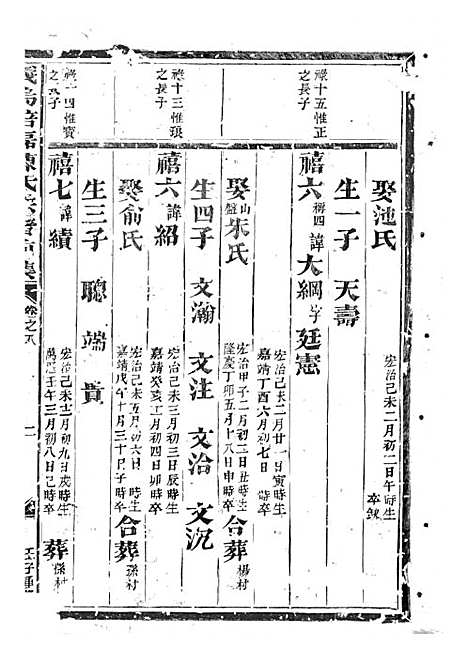 娶池氏 宏治己未二月初二日午時生 卒缺
生一子 天壽
祿十五惟正之長子
禧六 稱四 諱大綱字廷憲 宏治己未二月廿一日寅時生 嘉靖丁酉六月初七日
娶山盤朱氏 宏治甲子二月初三日丑時生 隆慶丁卯五月十八日申時卒 合葬楊村
生四子 文瀚 文注 文治 文沉
祿十三惟琅之長子
禧六 諱紹 宏治己未三月初三日辰時生 嘉靖癸亥十一月初四日卯時卒
娶俞氏 宏治己未五月初六日 時生 嘉靖戊午十月三十日子時卒 合葬孫村
生三子 聰 端 貴
祿十四惟寶之長子
禧七 諱績 宏治己未十二月初九日戌時生 萬歷壬午三月初八日己時卒 葬孫村
陳氏 卷之八 二 壬子重